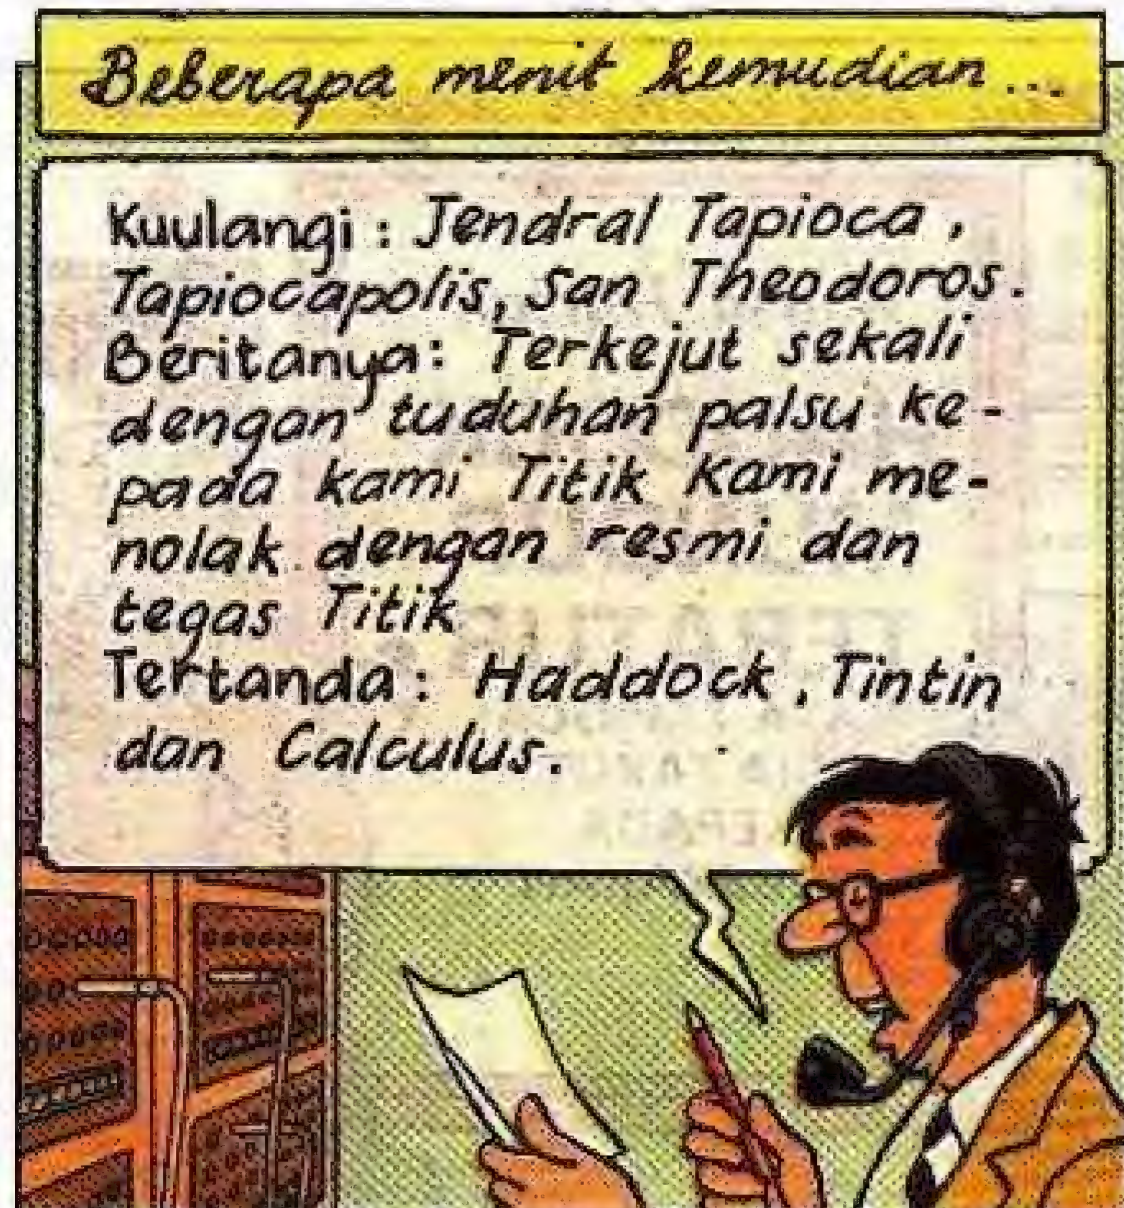 Beberapa menit kemudian...
Kuulangi : Jendral Tapioca ,
Tapiocapolis, San Theodoros.
Beritanya: Terkejut sekali
dengan tuduhan palsu ke-
pada kami Titik Kami me-
nolak dengan resmi dan
tegas Titik
Tertanda : Haddock , Tintin
dan Calculus.